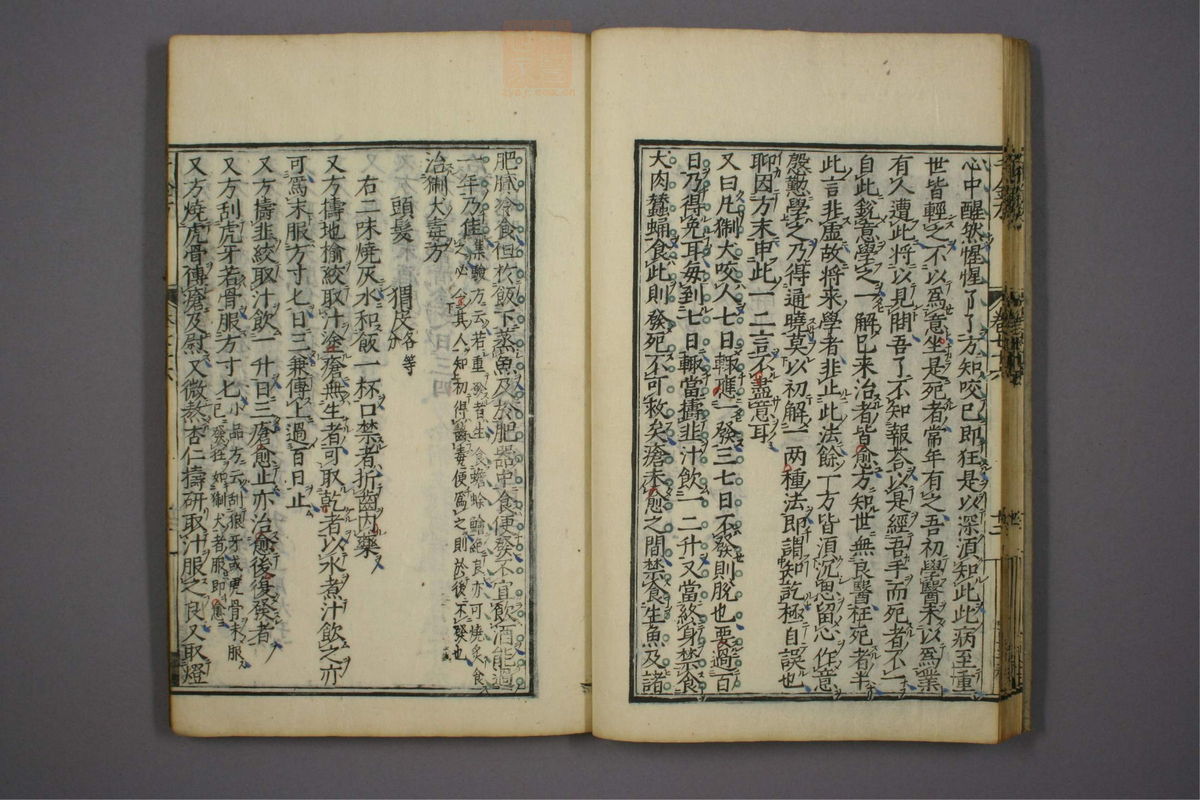 心中醒然惺惺了了方知咬已即狂是以深須知此此病至重
世皆輕之不以爲意坐是死者常年有之吾初學醫未以爲業
有久遭此將以見問吾了不知報荅以是經吾手而死者不一
自此銳意學之一解已来治者皆愈方知世無良醫枉死者半
此言非虛故将来學者非止此法餘丁方皆須沉思留心作意
慇懃學之乃得通曉莫以初解一兩種法即謂知訖極自誤也
聊因方末申此一二言不盡意耳
又曰凡猘犬咬人七日輙應一發三七日不發則脱也要過百
日乃得免耳每到七日輙當擣韭汁飲一二升又當終身禁食
犬肉蠶蛹食此則發死不可救矣瘡未愈之間禁食生魚及諸
肥膩冷食但於飯下蒸魚及於肥器中食便發不宜飲酒能過
一年乃佳集驗方云若重發者生食蟾蜍鱠絕良亦可燒炙食
之不必令其人知初得齧毒便爲之則於後不發也
治猘犬毒方
頭髮 猬皮各等分
右二味燒灰水和飲一杯口禁者折齒内藥
又方擣地榆絞取汁塗瘡無生者可取乾者以水煮汁飲之亦
可爲末服方寸匕日三兼傅上過百日止
又方擣韭絞取汁飲一升日三瘡愈止亦治愈後復發者
又方刮虎牙若骨服方寸匕小品方云刮狼牙或虎骨末服
已發狂如猘犬者服即愈
又方燒虎骨傅瘡及慰又微熬杏仁擣研取汁服之良又取燈